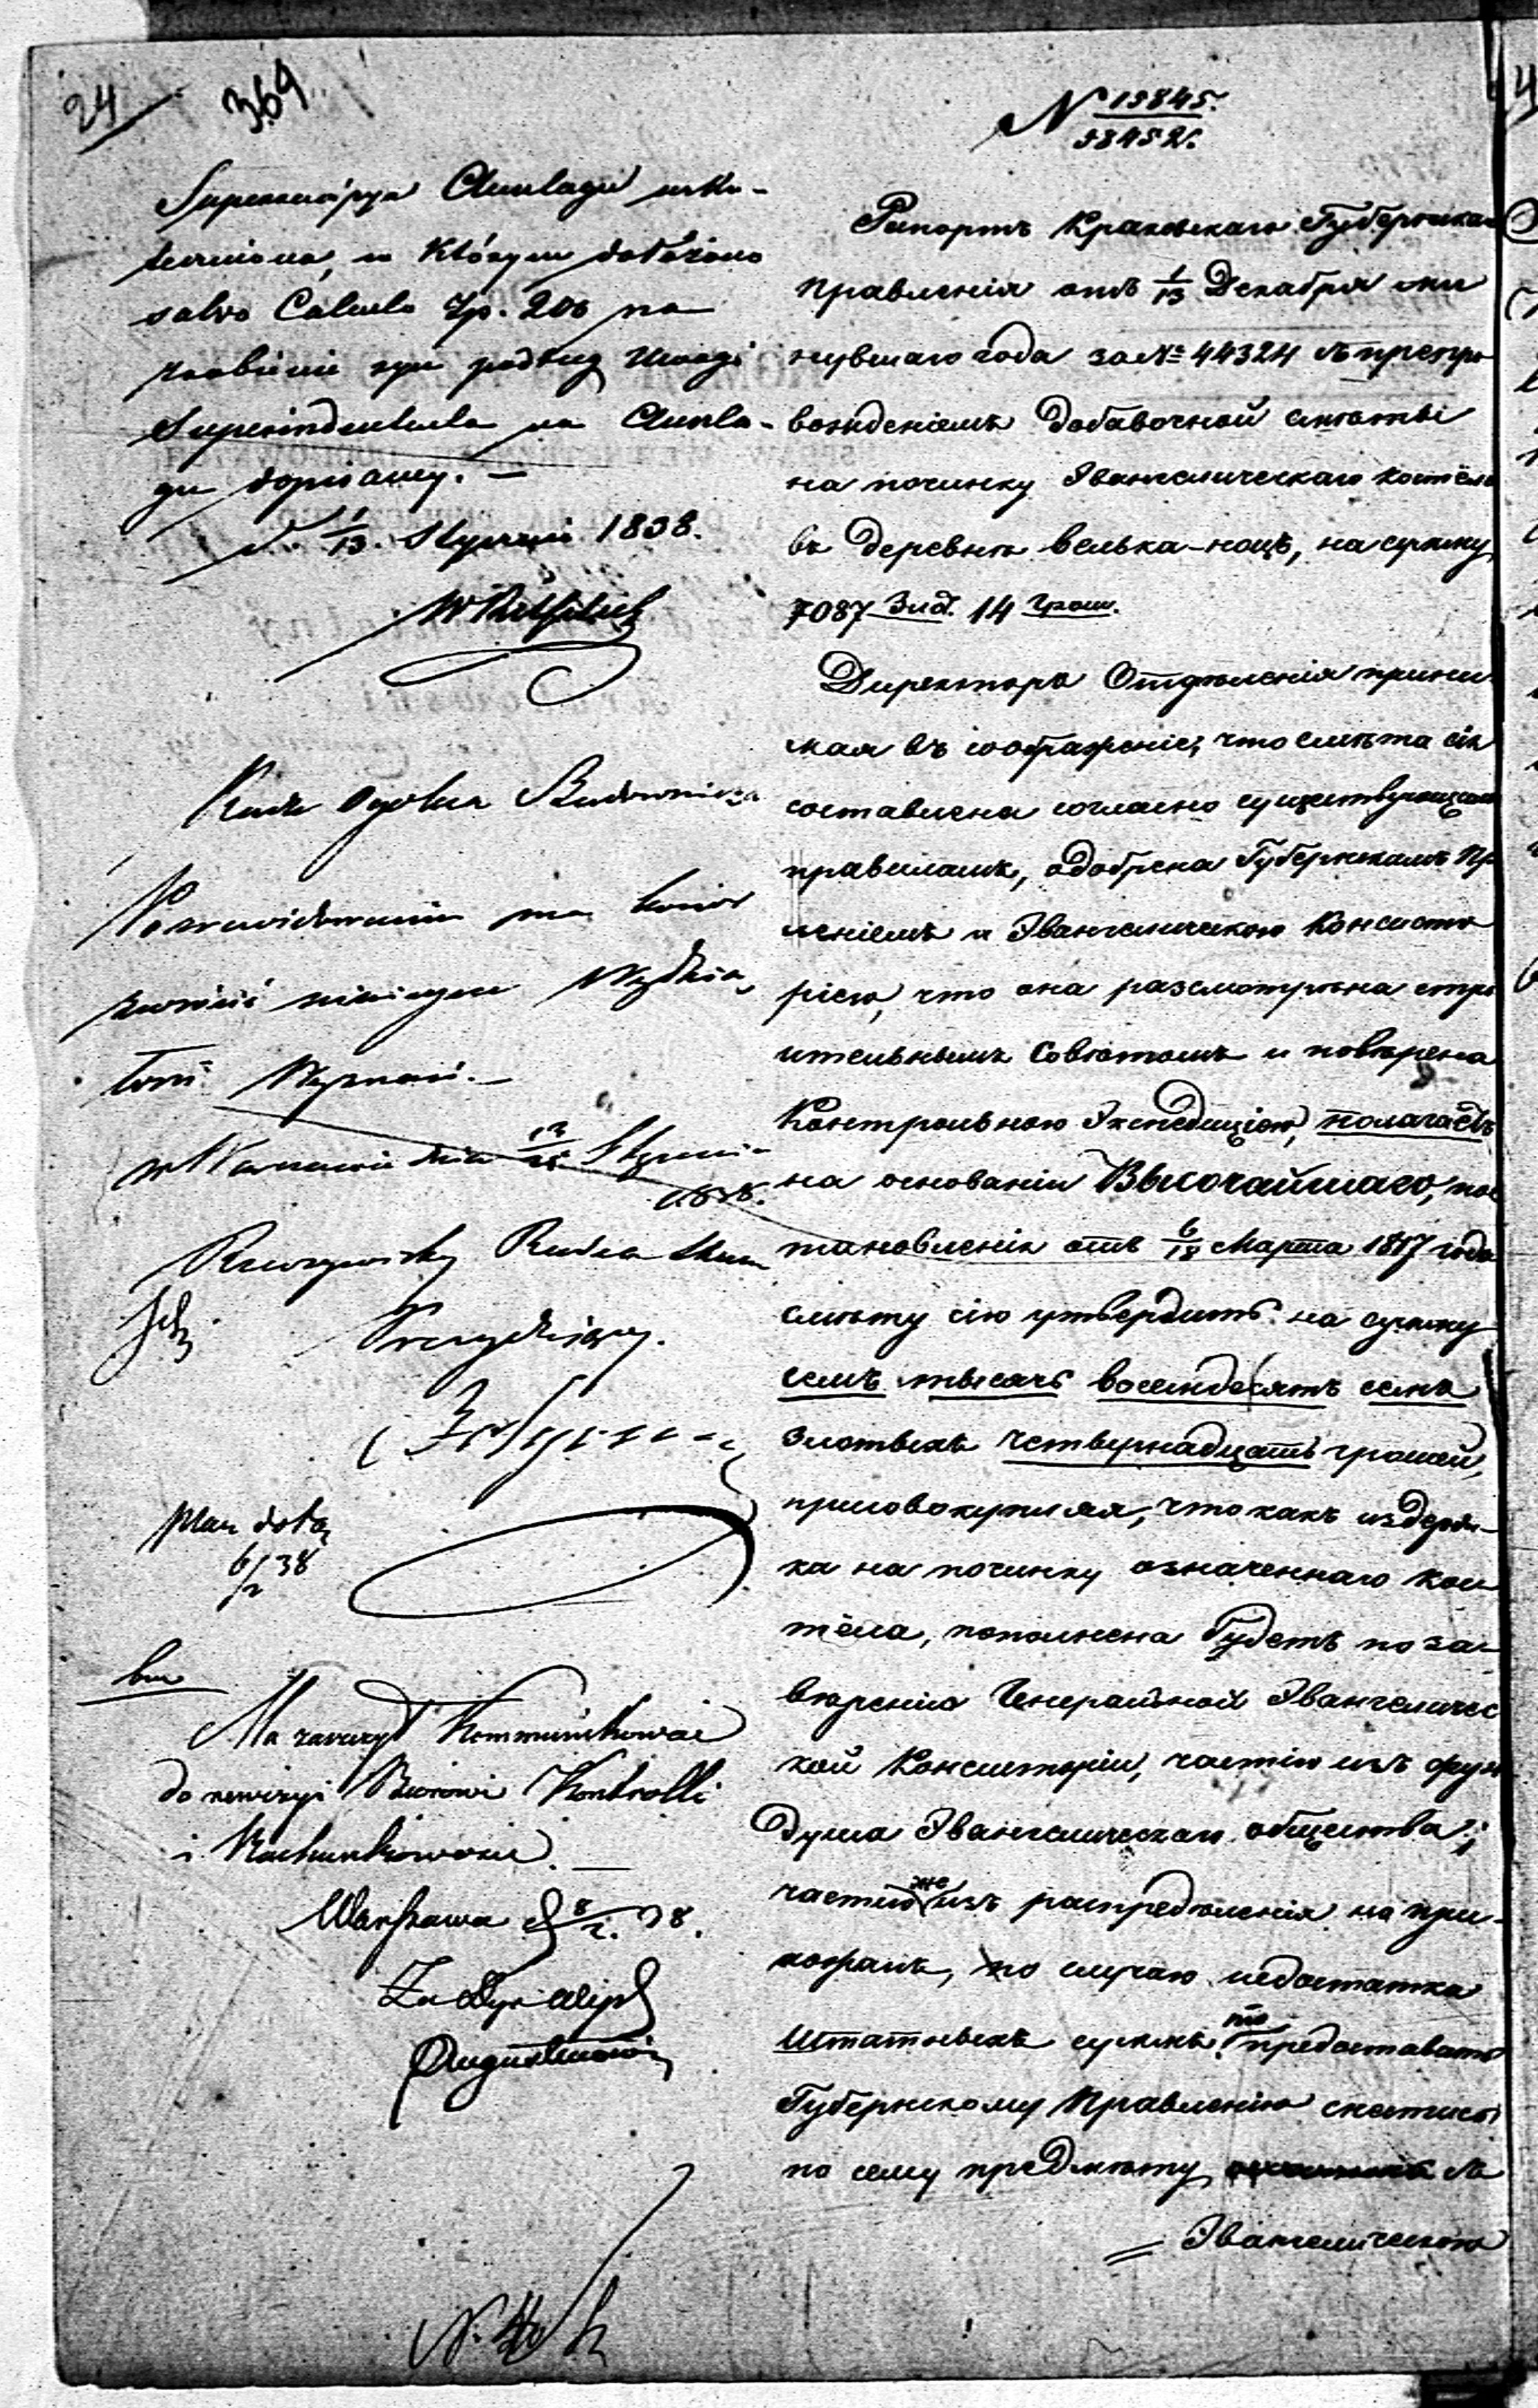 24
364
Superrewizya Anszlagu usku-
teczniona, w którym dołożono
salvo Calculo Zp. 208 na
zrobienie podług Uwagi
Superindententa na Anszla-
gu dopisaney. —
d. 1/13. Stycznia 1838.
Rada Ogólna Budownicza
Po zrewidowaniu ma honor
zwrócić niniejsze Wydzia-
łowi Wyznań. —
w Warszawie dnia 13/25 Stycznia
1838.
Rzeczywisty Radca Stanu
Prezydujący.
plan dołą
6/2 38
Ma zaszczyt Kommunikować
do rewizyi Biórowi Kontrolli
i Rachunkowości. —
Warszawa d 8/2. 38.
Za Dyr
Augustinowicz
N 13845.
33452.
Рапортъ Краковскаго Губернскаго
Правленія отъ 1/13 Декабря ми
нувшаго года за № 44324 съ препро
вожденіемъ добавочной смѣты
на починку Эвангелическаго костёла
въ деревнѣ Велька-ноцъ, на сумму
7087 Злот. 14 грош.
Директоръ Отдѣленія прини
мая въ соображеніе, что смѣта сія
составлена согласно существующимъ
правиламъ, одобрена Губернскимъ Пр
леніемъ и Эвангелическою Консисто
ріею, что она разсмотрѣна стро
ительнымъ Совѣтомъ и повѣрена
Контрольною Экспедиціею, полагаетъ
на основаніи Высочайшаго, пос
тановленія отъ 6/18 Марта 1817 года
смѣту сію утвердить на сумму
семь тысячъ восемьдесятъ семь
злотыхъ четырнадцать грошей,
присовокупляя, что какъ издерж-
ка на починку означеннаго кос
тёла, пополнена будетъ по за-
вѣренію Генеральной Эвангеличес
кой Консисторіи, частію изъ фун
душа Эвангелическаго общества;
частію же изъ распредѣленія на при-
хожанъ, по случаю недостатка
Штатныхъ суммъ, то предоставить
Губернскому Правленію снестись
по сему предмету съ
Эвангелическою